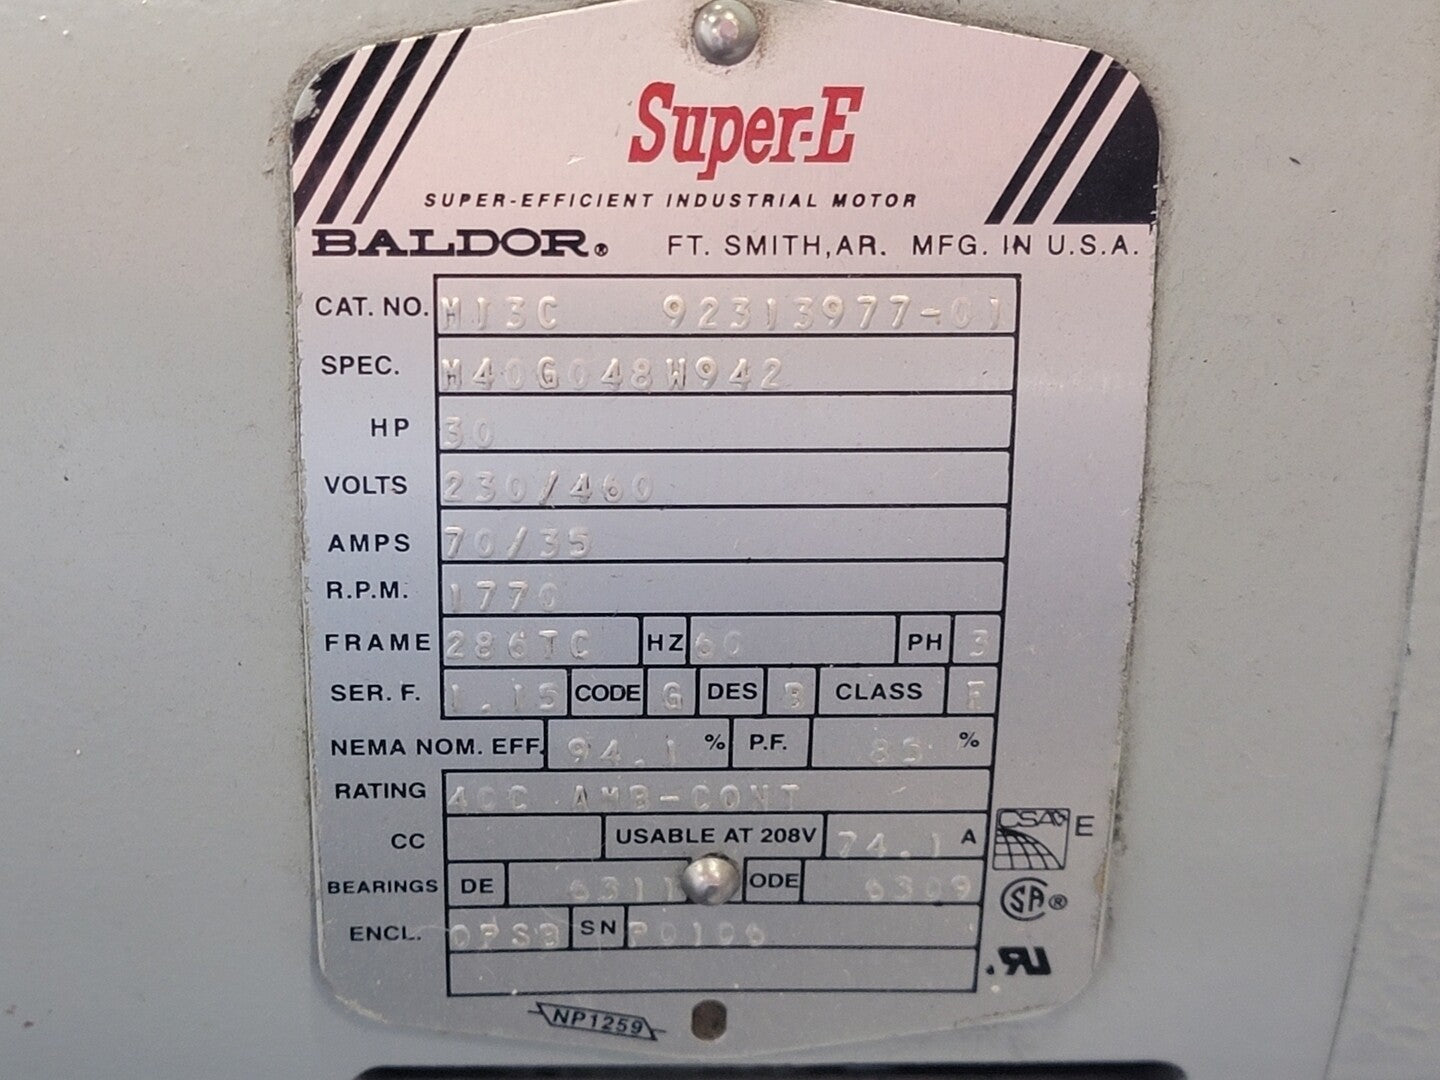 Super-E
SUPER-EFFICIENT INDUSTRIAL MOTOR
BALDOR® FT. SMITH, AR. MFG. IN U.S.A.
CAT. NO. M13C 92313977-01
SPEC. M40G048W942
HP 30
VOLTS 230/460
AMPS 70/35
R.P.M. 1770
FRAME 286TC HZ 60 PH 3
SER. F. 1.15 CODE G DES B CLASS F
NEMA NOM. EFF. 94.1 % P.F. 85 %
RATING 40C AMB-CONT
CC USABLE AT 208V 74.1 A
BEARINGS DE 6311 ODE 6309
ENCL. OPSB SN P0106
CSA E
SA®
UR
NP1259